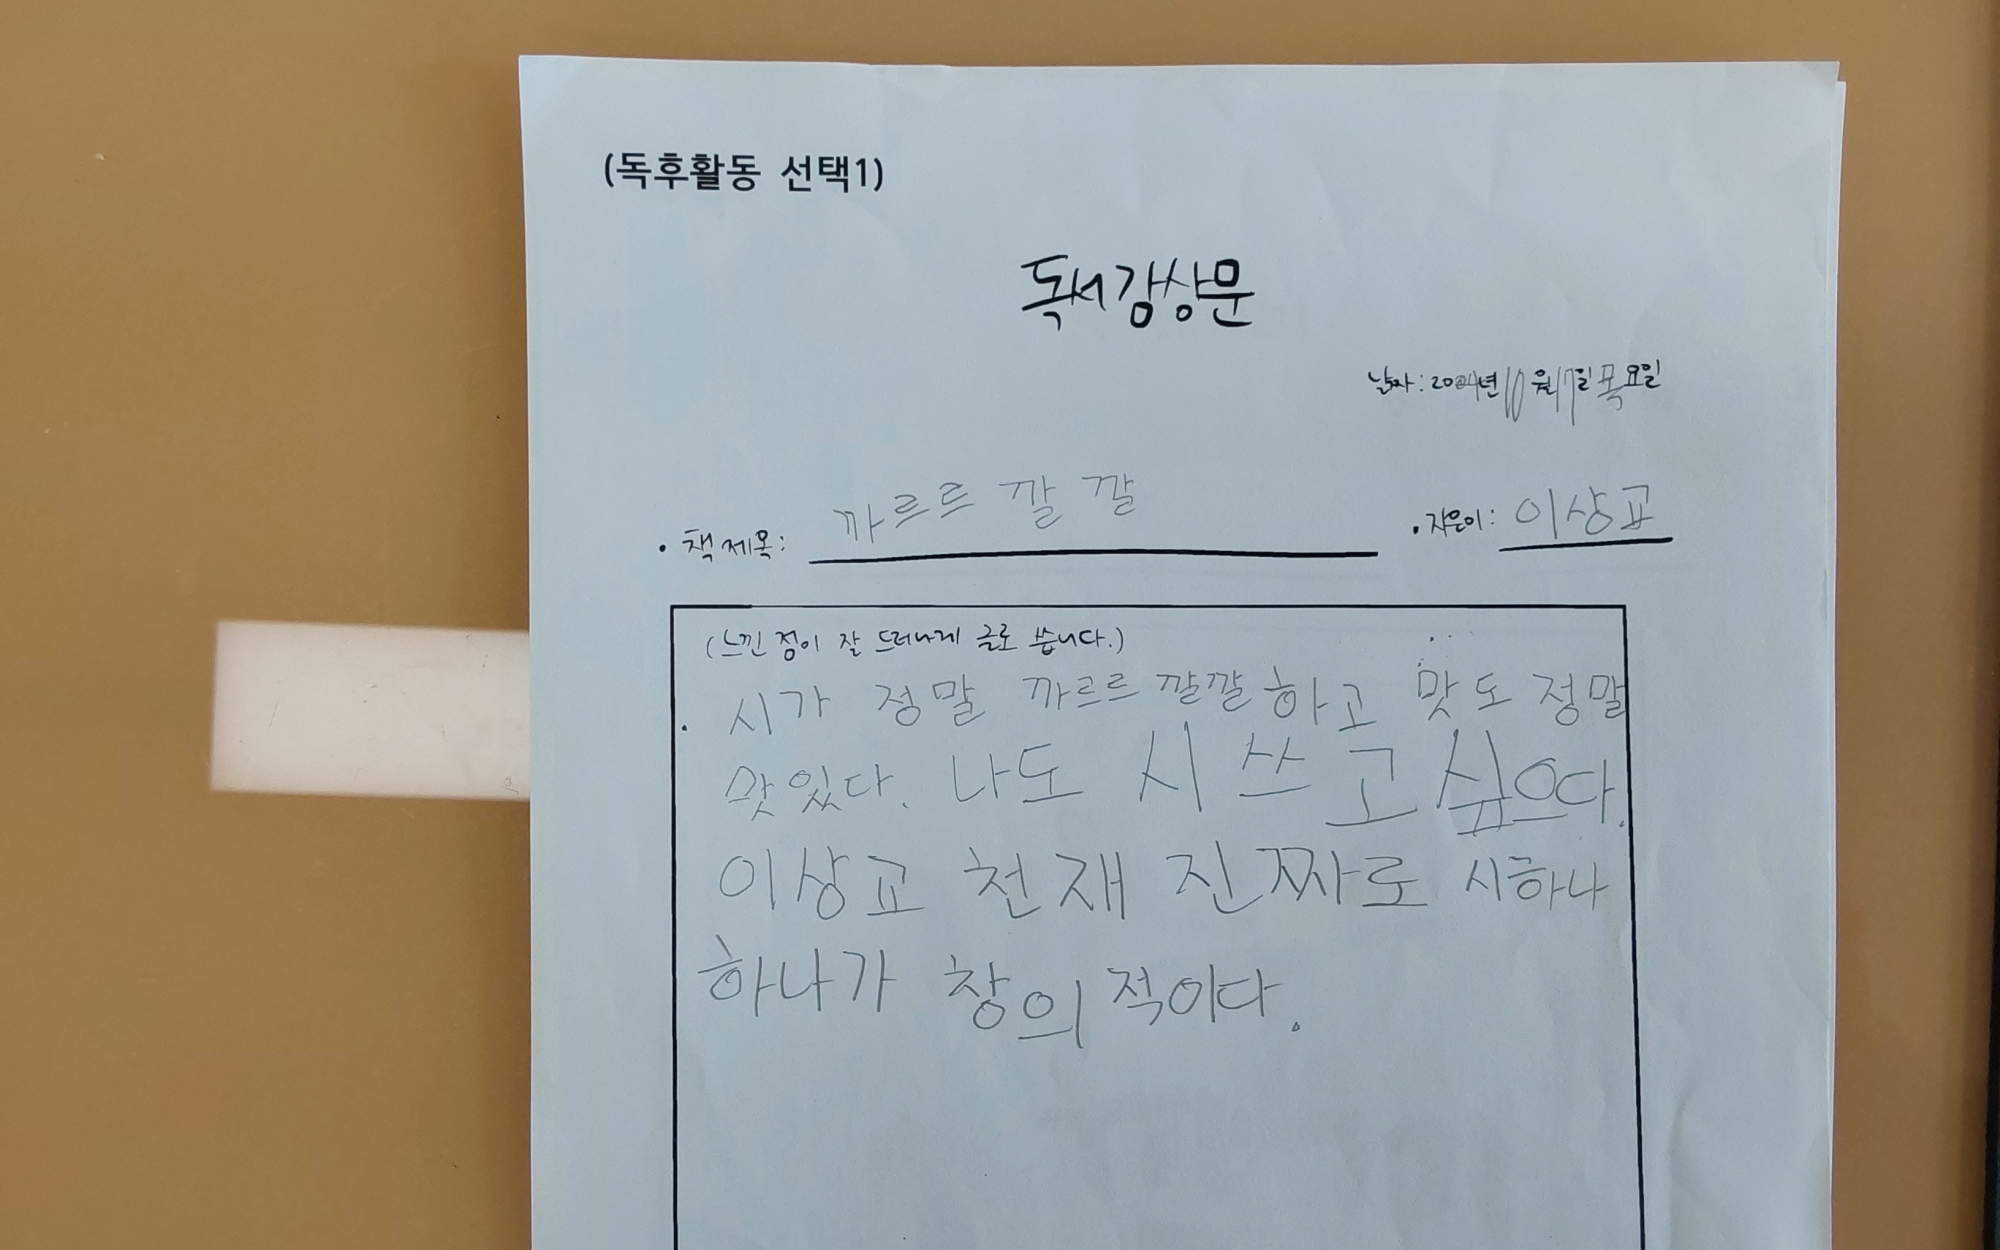 (독후활동 선택1)
독서감상문
날짜: 2024년 10월 17일 목요일
• 책 제목: 까르르 깔깔 • 지은이: 이상교
(느낀 점이 잘 드러나게 글로 씁니다.)
시가 정말 까르르 깔깔하고 맛도 정말
맛있다. 나도 시 쓰고 싶으다.
이상교 천재 진짜로 시하나
하나가 창의적이다.